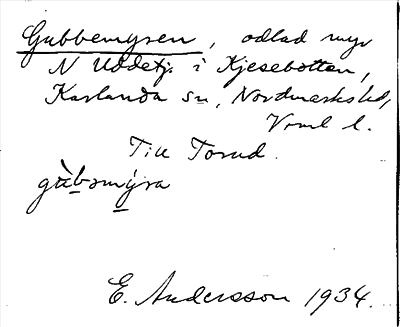 Gubbemyren, odlad myr
N Uddetj. i Kjesebotten,
Karlanda sn, Nordmarks hd,
Vrml l.
Till Torud.
gùbomýra
E. Andersson 1934.